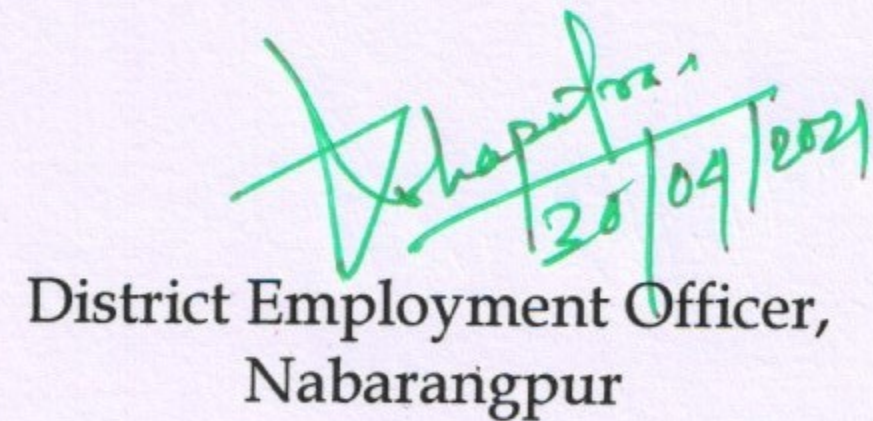 30/04/2021
District Employment Officer,
Nabarangpur